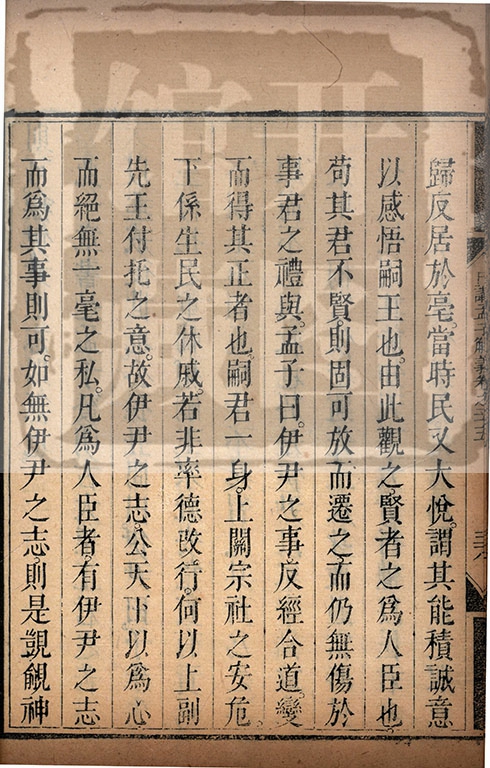 歸反居於亳。當時民又大悅。謂其能積誠意
以感悟嗣王也。由此觀之。賢者之爲人臣也。
苟其君不賢。則固可放而遷之。而仍無傷於
事君之禮與。孟子曰。伊尹之事。反經合道。變
而得其正者也。嗣君一身。上關宗社之安危。
下係生民之休戚。若非率德改行。何以上副
先王付托之意。故伊尹之志。公天下以爲心
而絕無一毫之私。凡爲人臣者。有伊尹之志
而爲其事則可。如無伊尹之志。則是覬覦神